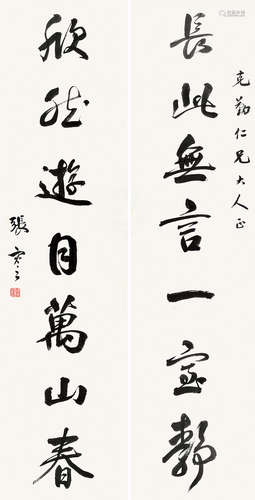 克勤仁兄大人正
長此無言一室靜
欣然遊目萬山春
張寒